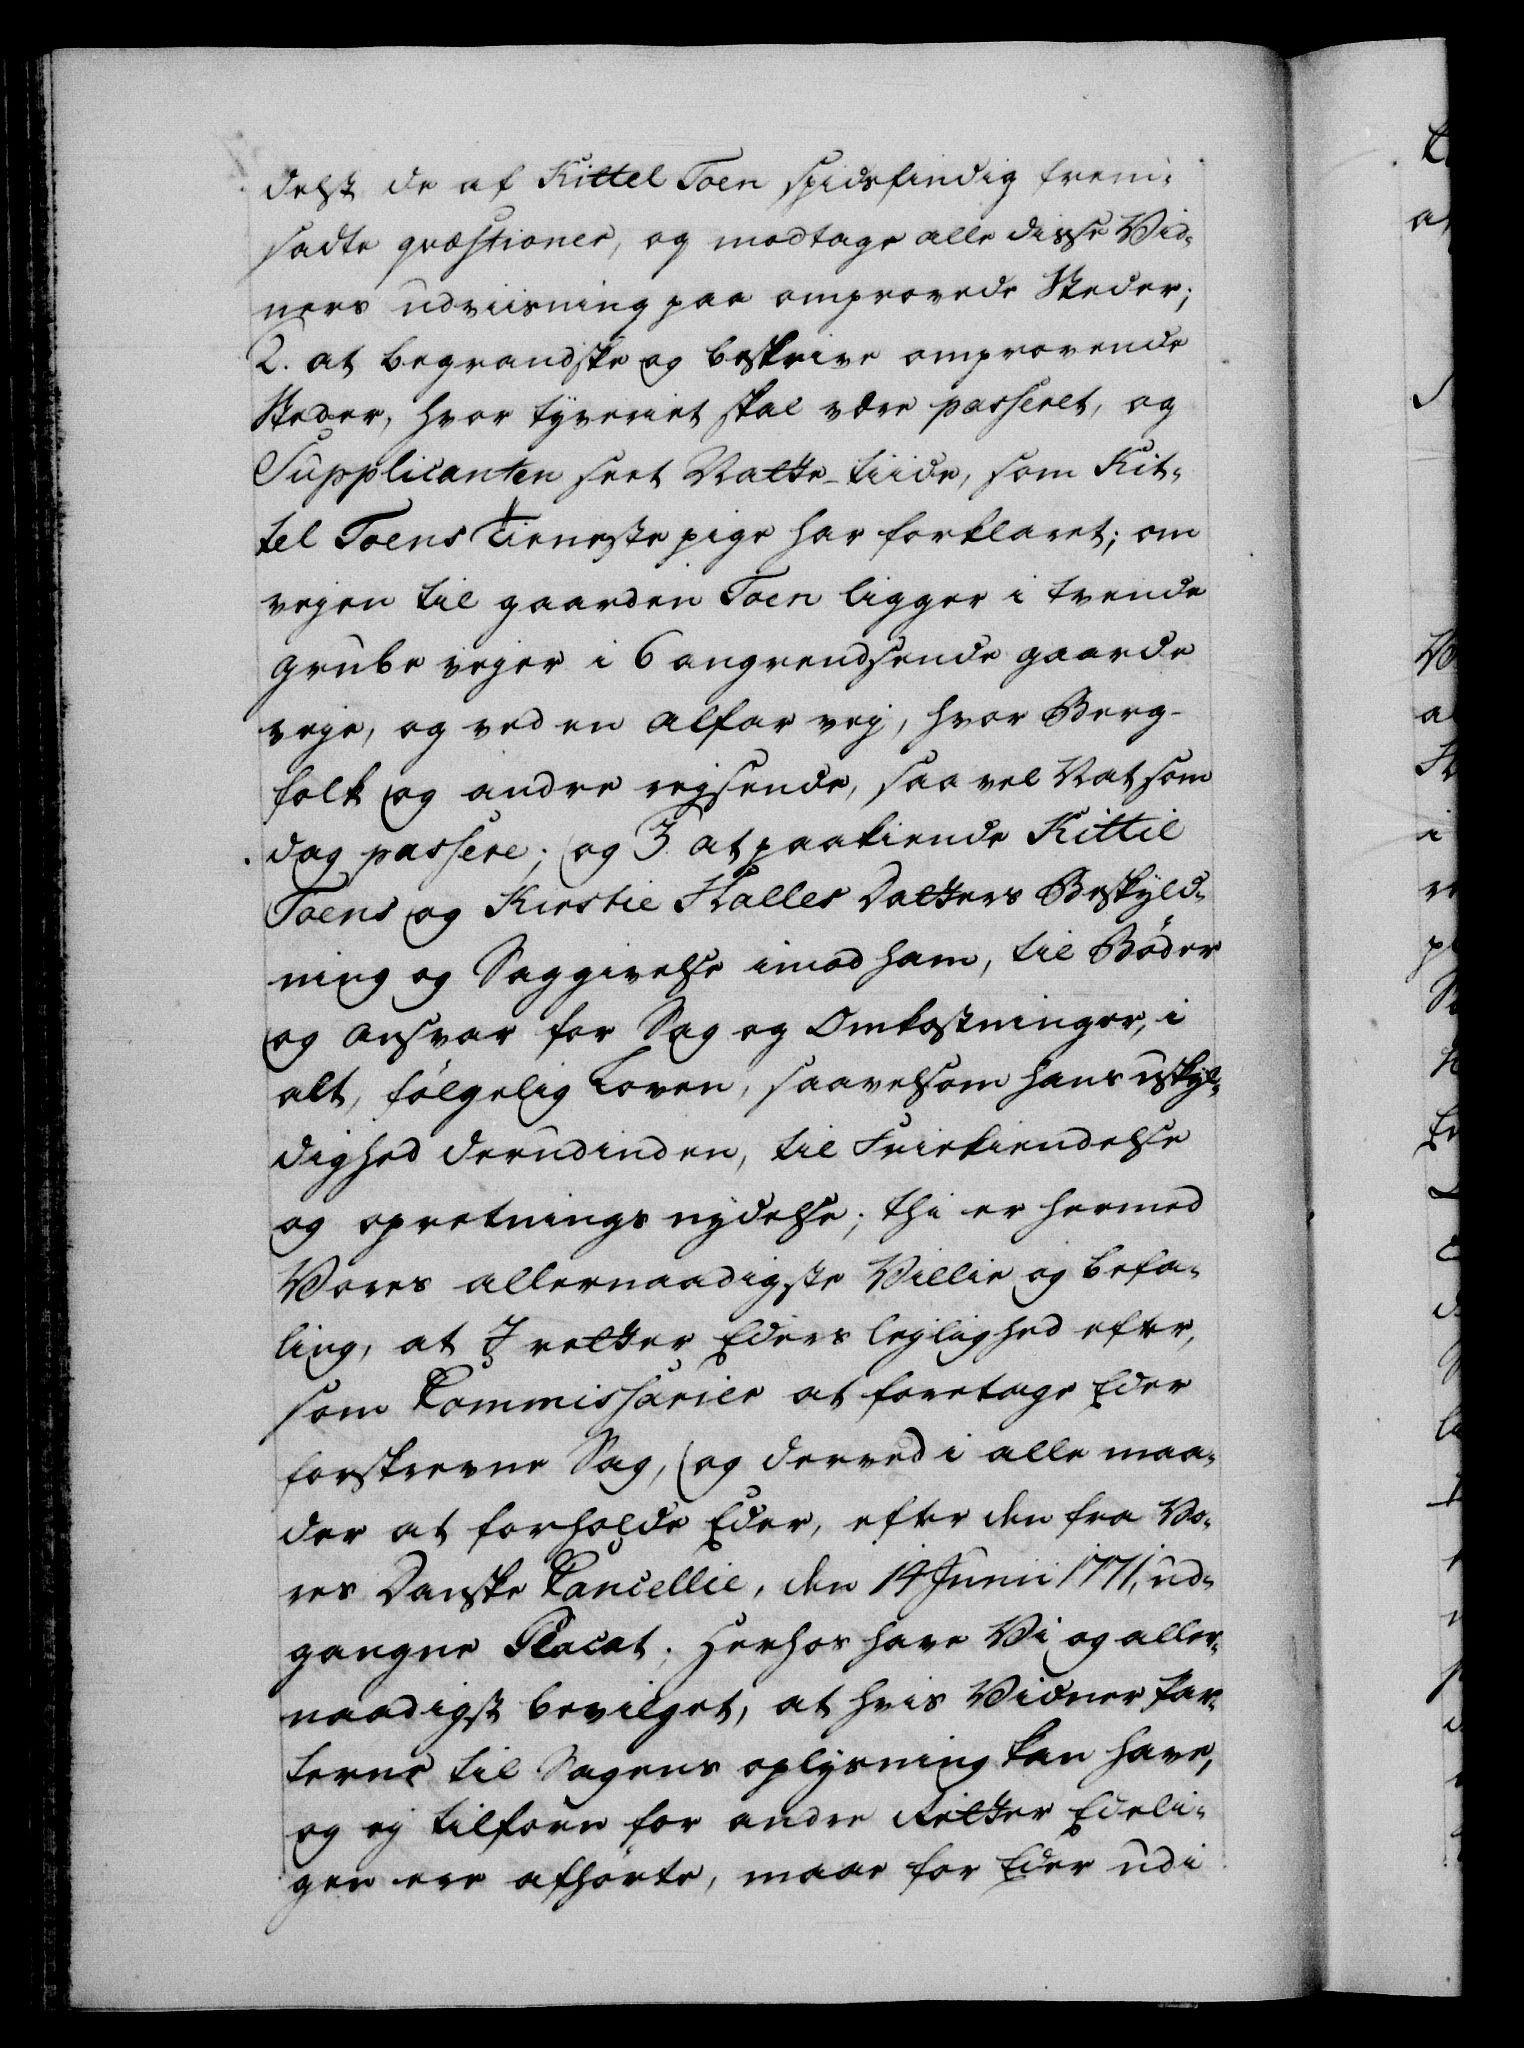 delst de af Kittel Toen spidsfindig frem-
sadte qvæstioner, og modtage alle disse Vid-
ners udviisning paa omprovede Steder;
2. at begrandske og beskrive omprovende
Steder, hvor tyveriet skal være passeret, og
Supplicanten seet Natte-tiide, som Kit-
tel Toens Tieneste pige har forklaret; om
vejen til gaarden Toen ligger i tvende
grube vejer i 6 angrendsende gaarde
veje, og ved en alfar vej, hvor Berg-
folk og andre rejsende, saa vel Nat som
dag passere; og 3 at paakiende Kittil
Toens og Kirstie Halles Datters Beskyld-
ning og Saggivelse imod ham, til Bøder
og ansvar for Sag og Omkostninger, i
alt, følgelig Loven, saavelsom hans uskyl-
dighed derudinden, til Friekiendelse
og opretnings nydelse; thi er hermed
Vores allernaadigste Villie og befa-
ling, at I retter Eders lejlighed efter,
som Commissarier at foretage Eder
forskrevne Sag, og derved i alle maa-
der at forholde Eder, efter den fra Vo-
res Danske Cancellie, den 14 Junii 1771, ud-
gangne Placat; Herhos have Vi og aller-
naadigst bevilget, at hvis Vidner Par-
terne til Sagens oplysning kan have,
og ej tilforn for andre Retter Edeli-
gen ere afhørte, maae for Eder udi